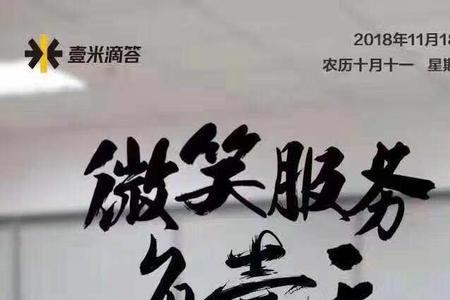 壹米滴答
2018年11月18
农历十月十一 星期
微笑服务